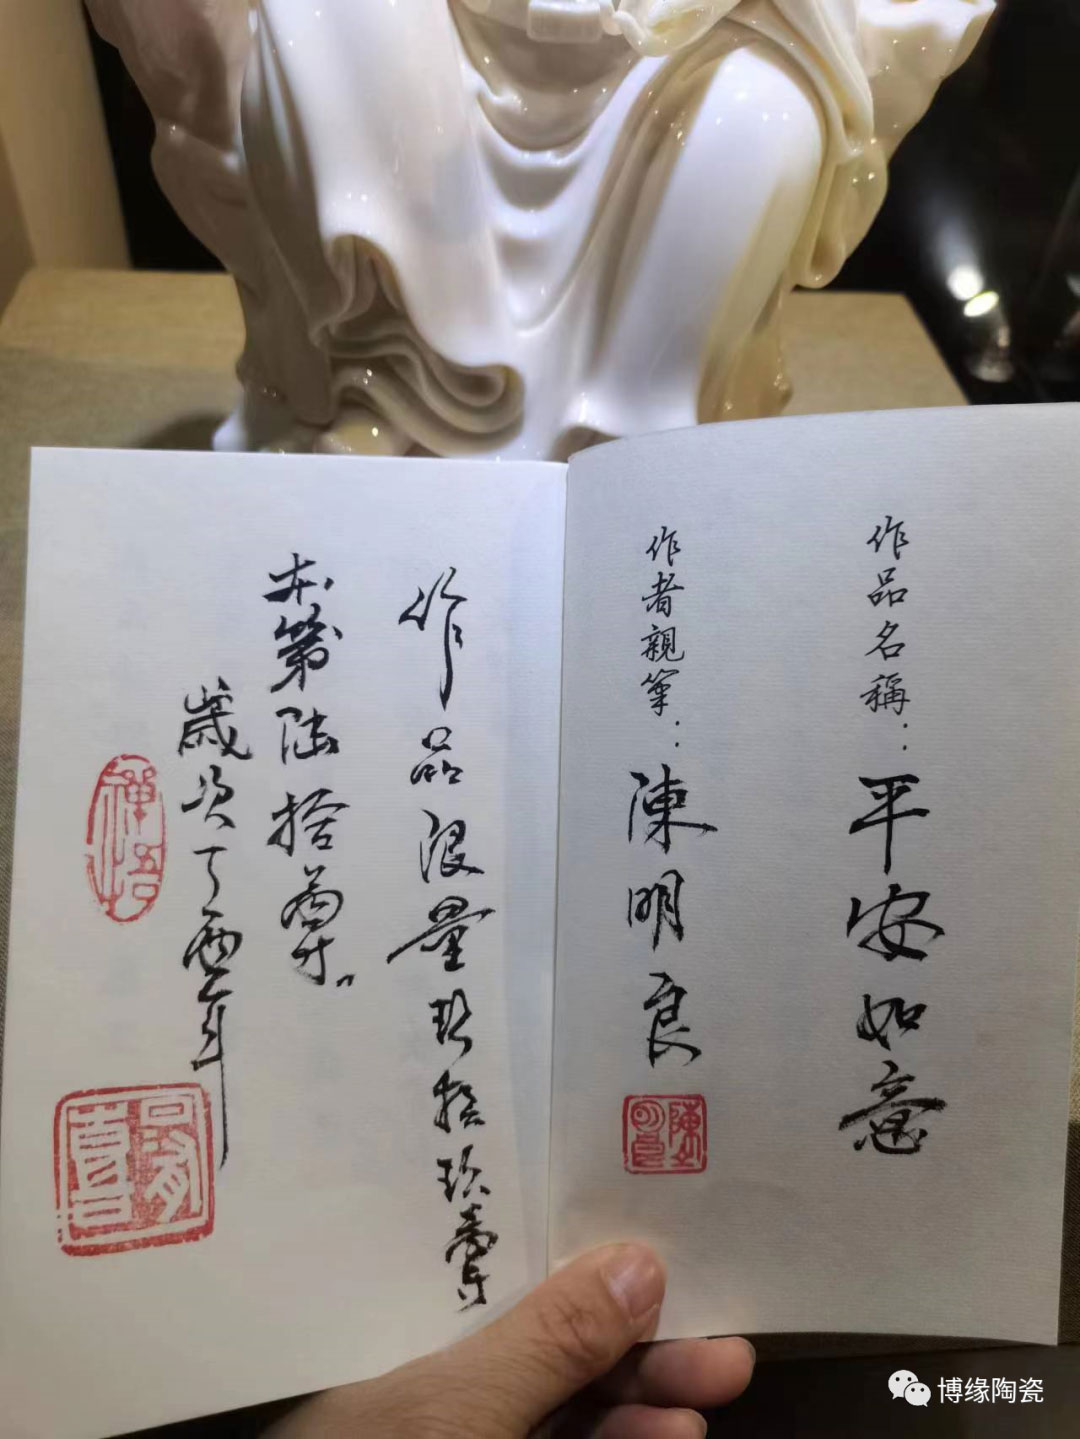 作品名稱：平安如意
作者親筆：陳明良
作品限量玖拾玖尊
本第陆拾尊。
歲次丁酉年
禪悟
博缘陶瓷